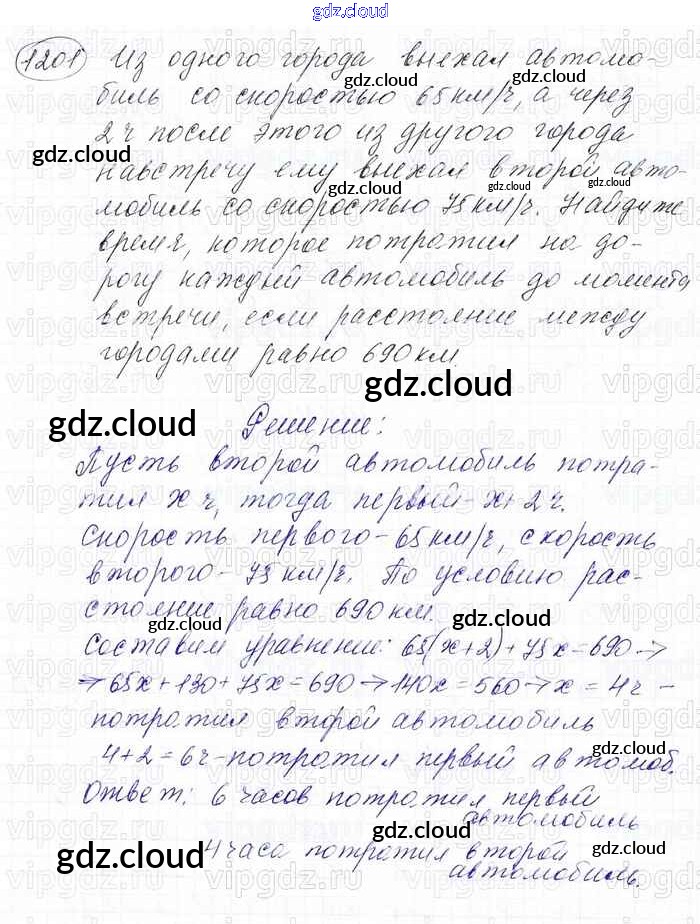 gdz.cloud
1201 Из одного города выехал автомо-
биль со скоростью 65 км/ч, а через
2 ч после этого из другого города
навстречу ему выехал второй авто-
мобиль со скоростью 75 км/ч. Найдите
время, которое потратил на до-
рогу каждый автомобиль до момента
встречи, если расстояние между
городами равно 690 км.
gdz.cloud
gdz.cloud
Решение:
Пусть второй автомобиль потра-
тил x ч, тогда первый - x+2 ч.
Скорость первого - 65 км/ч, скорость
второго - 75 км/ч. По условию рас-
стояние равно 690 км.
Составим уравнение: 65(x+2)+75x=690→
→65x+130+75x=690→140x=560→x=4ч -
потратил второй автомобиль
4+2=6ч-потратил первый автомоб.
Ответ: 6 часов потратил первый
автомобиль
4 часа потратил второй
автомобиль.
gdz.cloud